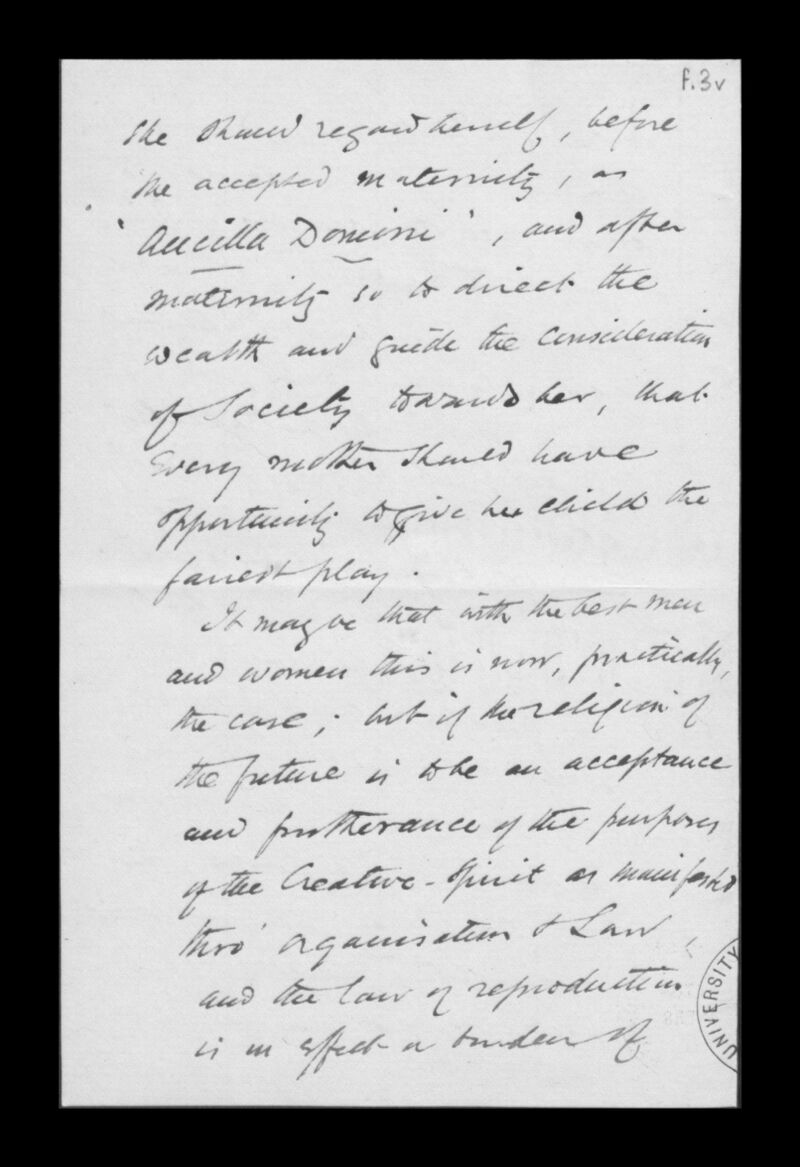 f.3v
she should regard herself, before
she accepted maternity, as
'Ancilla Domini', and after
maternity so to direct the
wealth and guide the consideration
of Society towards her, that
every mother should have
opportunity to give her child the
fairest play.
It may be that with the best men
and women this is now, practically,
the case; but if the religion of
the future is to be an acceptance
and furtherance of the purposes
of the Creative-Spirit as manifested
thro' organisation & Law,
and the law of reproduction
is in effect a burden of
UNIVERSITY